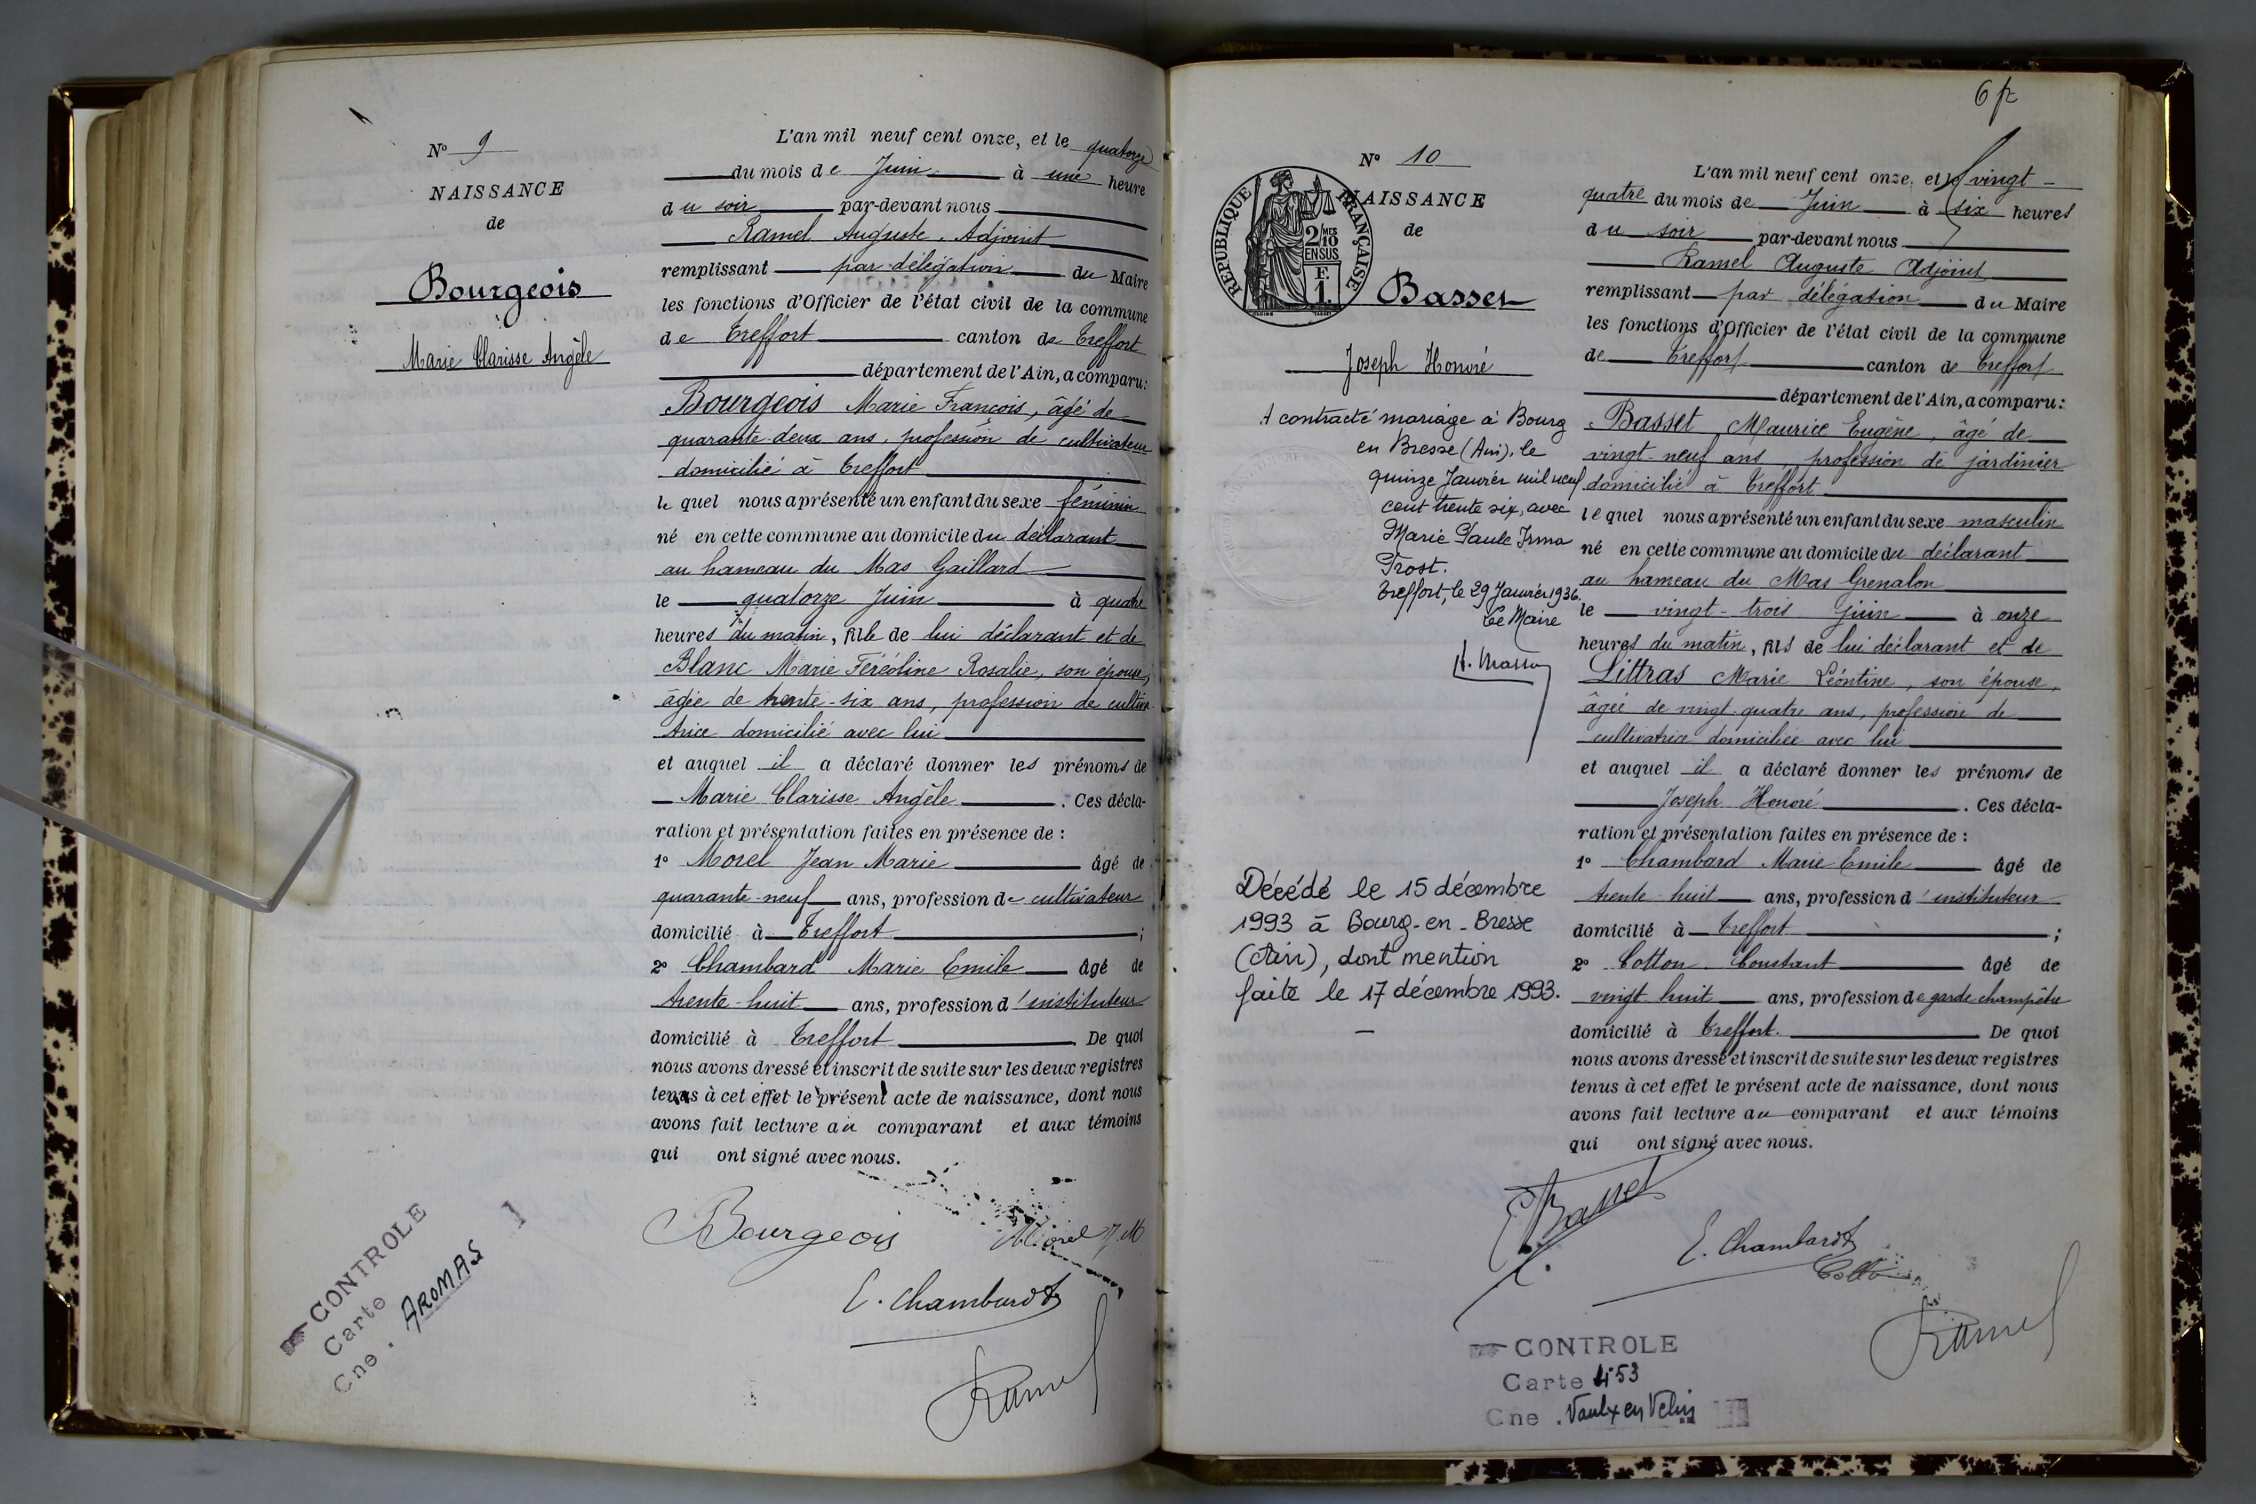 N° 9
NAISSANCE
de
Bourgeois
Marie Clarisse Angèle
L'an mil neuf cent onze, et le quatorze
du mois de Juin à une heure
du soir par-devant nous
Ramel Auguste, Adjoint
remplissant par délégation du Maire
les fonctions d'Officier de l'état civil de la commune
de Treffort canton de Treffort
département de l'Ain, a comparu:
Bourgeois Marie François, âgé de
quarante-deux ans, profession de cultivateur
domicilié à Treffort
le quel nous a présenté un enfant du sexe féminin
né en cette commune au domicile du déclarant
au hameau du Mas Gaillard
le quatorze Juin à quatre
heures du matin, fille de lui déclarant et de
Blanc Marie Féréoline Rosalie, son épouse,
âgée de trente-six ans, profession de cultiva-
trice domicilié avec lui
et auquel il a déclaré donner les prénoms de
Marie Clarisse Angèle. Ces décla-
ration et présentation faites en présence de :
1° Morel Jean Marie âgé de
quarante-neuf ans, profession de cultivateur
domicilié à Treffort ;
2° Chambard Marie Emile âgé de
trente-huit ans, profession d'instituteur
domicilié à Treffort. De quoi
nous avons dressé et inscrit de suite sur les deux registres
tenus à cet effet le présent acte de naissance, dont nous
avons fait lecture au comparant et aux témoins
qui ont signé avec nous.
Bourgeois Morel J. M
E. Chambard
Ramel
CONTROLE
Carte
Cne. AROMAS
6 f
N° 10
NAISSANCE
de
REPUBLIQUE FRANÇAISE
2/10 MES
EN SUS
F.
1.
Basset
Joseph Honoré
A contracté mariage à Bourg
en Bresse (Ain), le
quinze Janvier mil neuf
cent trente six, avec
Marie Paule Irma
Prost.
Treffort, le 29 Janvier 1936.
Le Maire
Décédé le 15 décembre
1993 à Bourg-en-Bresse
(Ain), dont mention
faite le 17 décembre 1993.
L'an mil neuf cent onze, et le vingt-
quatre du mois de Juin à six heures
du soir par-devant nous
Ramel Auguste Adjoint
remplissant par délégation du Maire
les fonctions d'Officier de l'état civil de la commune
de Treffort canton de Treffort
département de l'Ain, a comparu:
Basset Maurice Eugène, âgé de
vingt-neuf ans, profession de jardinier
domicilié à Treffort
le quel nous a présenté un enfant du sexe masculin
né en cette commune au domicile du déclarant
au hameau du Mas Grenalon
le vingt-trois juin à onze
heures du matin, fils de lui déclarant et de
Littras Marie Léontine, son épouse,
âgée de vingt-quatre ans, profession de
cultivatrice domiciliée avec lui
et auquel il a déclaré donner les prénoms de
Joseph Honoré. Ces décla-
ration et présentation faites en présence de :
1° Chambard Marie Emile âgé de
trente-huit ans, profession d'instituteur
domicilié à Treffort ;
2° Cotton Constant âgé de
vingt huit ans, profession de garde champêtre
domicilié à Treffort. De quoi
nous avons dressé et inscrit de suite sur les deux registres
tenus à cet effet le présent acte de naissance, dont nous
avons fait lecture au comparant et aux témoins
qui ont signé avec nous.
E. Basset
E. Chambard
Cotton
Ramel
CONTROLE
Carte 453
Cne. Vaulx en Velin